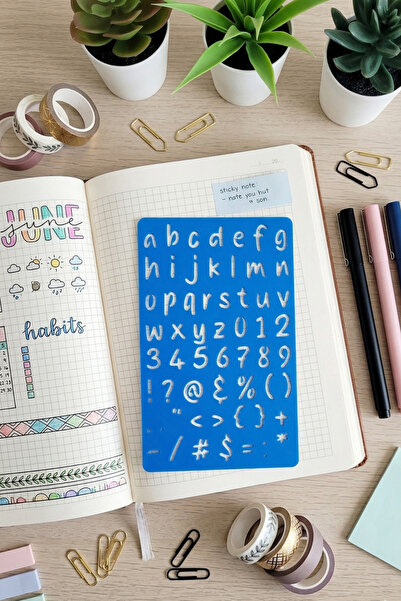 JUNE
june
habits
sticky note
- nate you hut
a son
a b c d e f g
h i j k l m n
o p q r s t u v
w x y z 0 1 2
3 4 5 6 7 8 9
! ? @ & % ( )
" < > { } +
- / # $ = : *